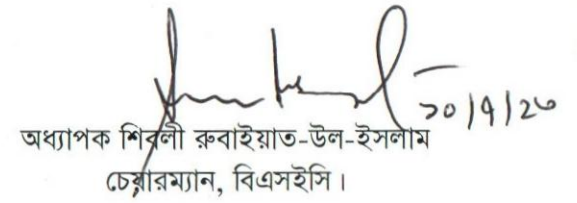 ২০/৭/২৩
অধ্যাপক শিবলী রুবাইয়াত-উল-ইসলাম
চেয়ারম্যান, বিএসইসি।